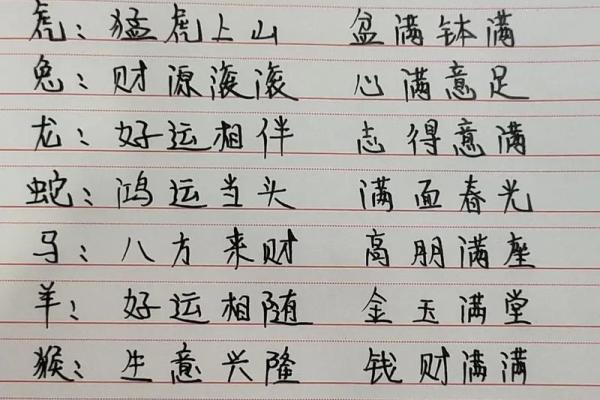 虎：猛虎上山 盆满钵满
兔：财源滚滚 心满意足
龙：好运相伴 志得意满
蛇：鸿运当头 满面春光
马：八方来财 高朋满座
羊：好运相随 金玉满堂
猴：生意兴隆 钱财满满